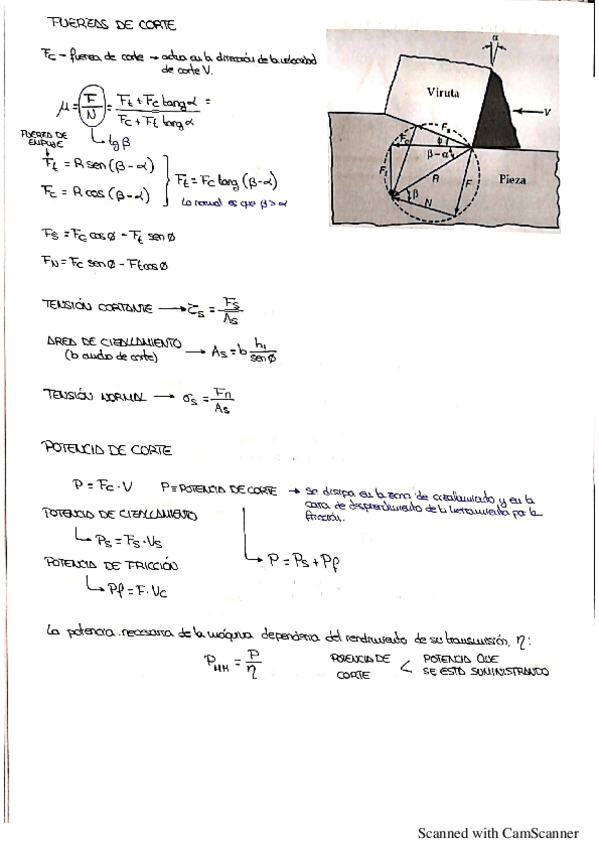 FUERZAS DE CORTE
Fc - fuerza de corte → actua en la dirección de la velocidad
de corte V.
μ = F/N = (Ft + Fc tang α)/(Fc + Ft tang α) =
tg β
FUERZA DE
EMPUJE
Ft = R sen (β - α)
Fc = R cos (β - α)
Ft = Fc tang (β - α)
Lo normal es que β > α
Fs = Fc cos ø - Ft sen ø
FN = Fc sen ø - Ft cos ø
TENSIÓN CORTANTE → τs = Fs/As
AREA DE CIZALLAMIENTO
(b ancho de corte) → As = b h1/sen ø
TENSIÓN NORMAL → σs = Fn/As
α
Viruta
V
Fs
Fc
ø
β-α
Ft
R
F
β
N
Pieza
POTENCIA DE CORTE
P = Fc · V P = POTENCIA DE CORTE → se disipa en la zona de cizallamiento y en la
cara de desprendimiento de la herramienta por la
fricción.
POTENCIA DE CIZALLAMIENTO
Ps = Fs · Vs
P = Ps + Pf
POTENCIA DE FRICCIÓN
Pf = F · Vc
La potencia necesaria de la máquina dependeria del rendimiento de su transmisión, η:
PMH = P/η
POTENCIA DE
CORTE < POTENCIA QUE
SE ESTA SUMINISTRANDO
Scanned with CamScanner